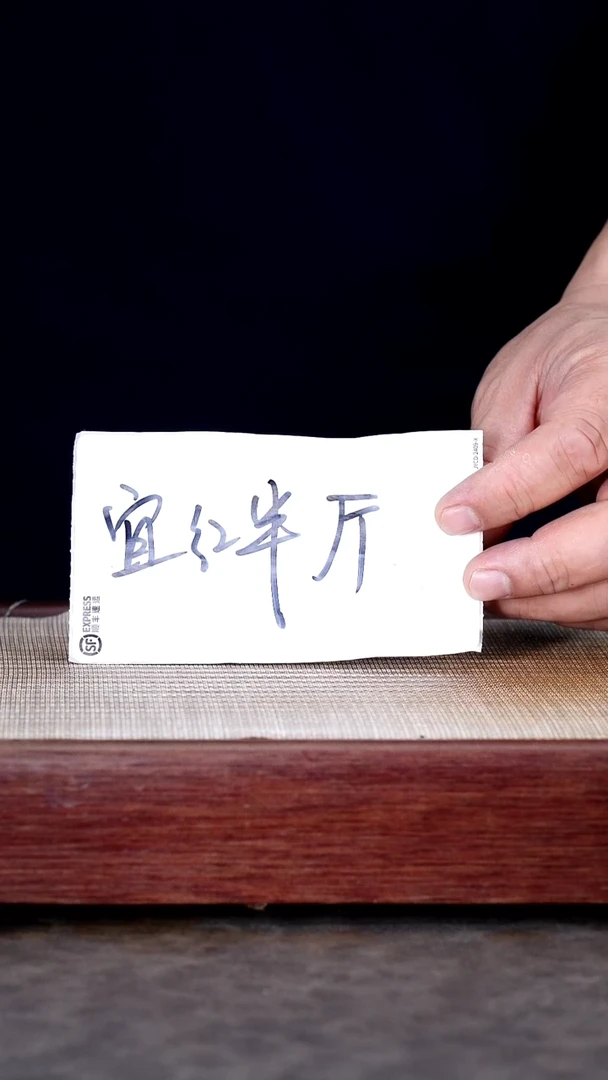 宜红半斤
SF EXPRESS
顺丰速运